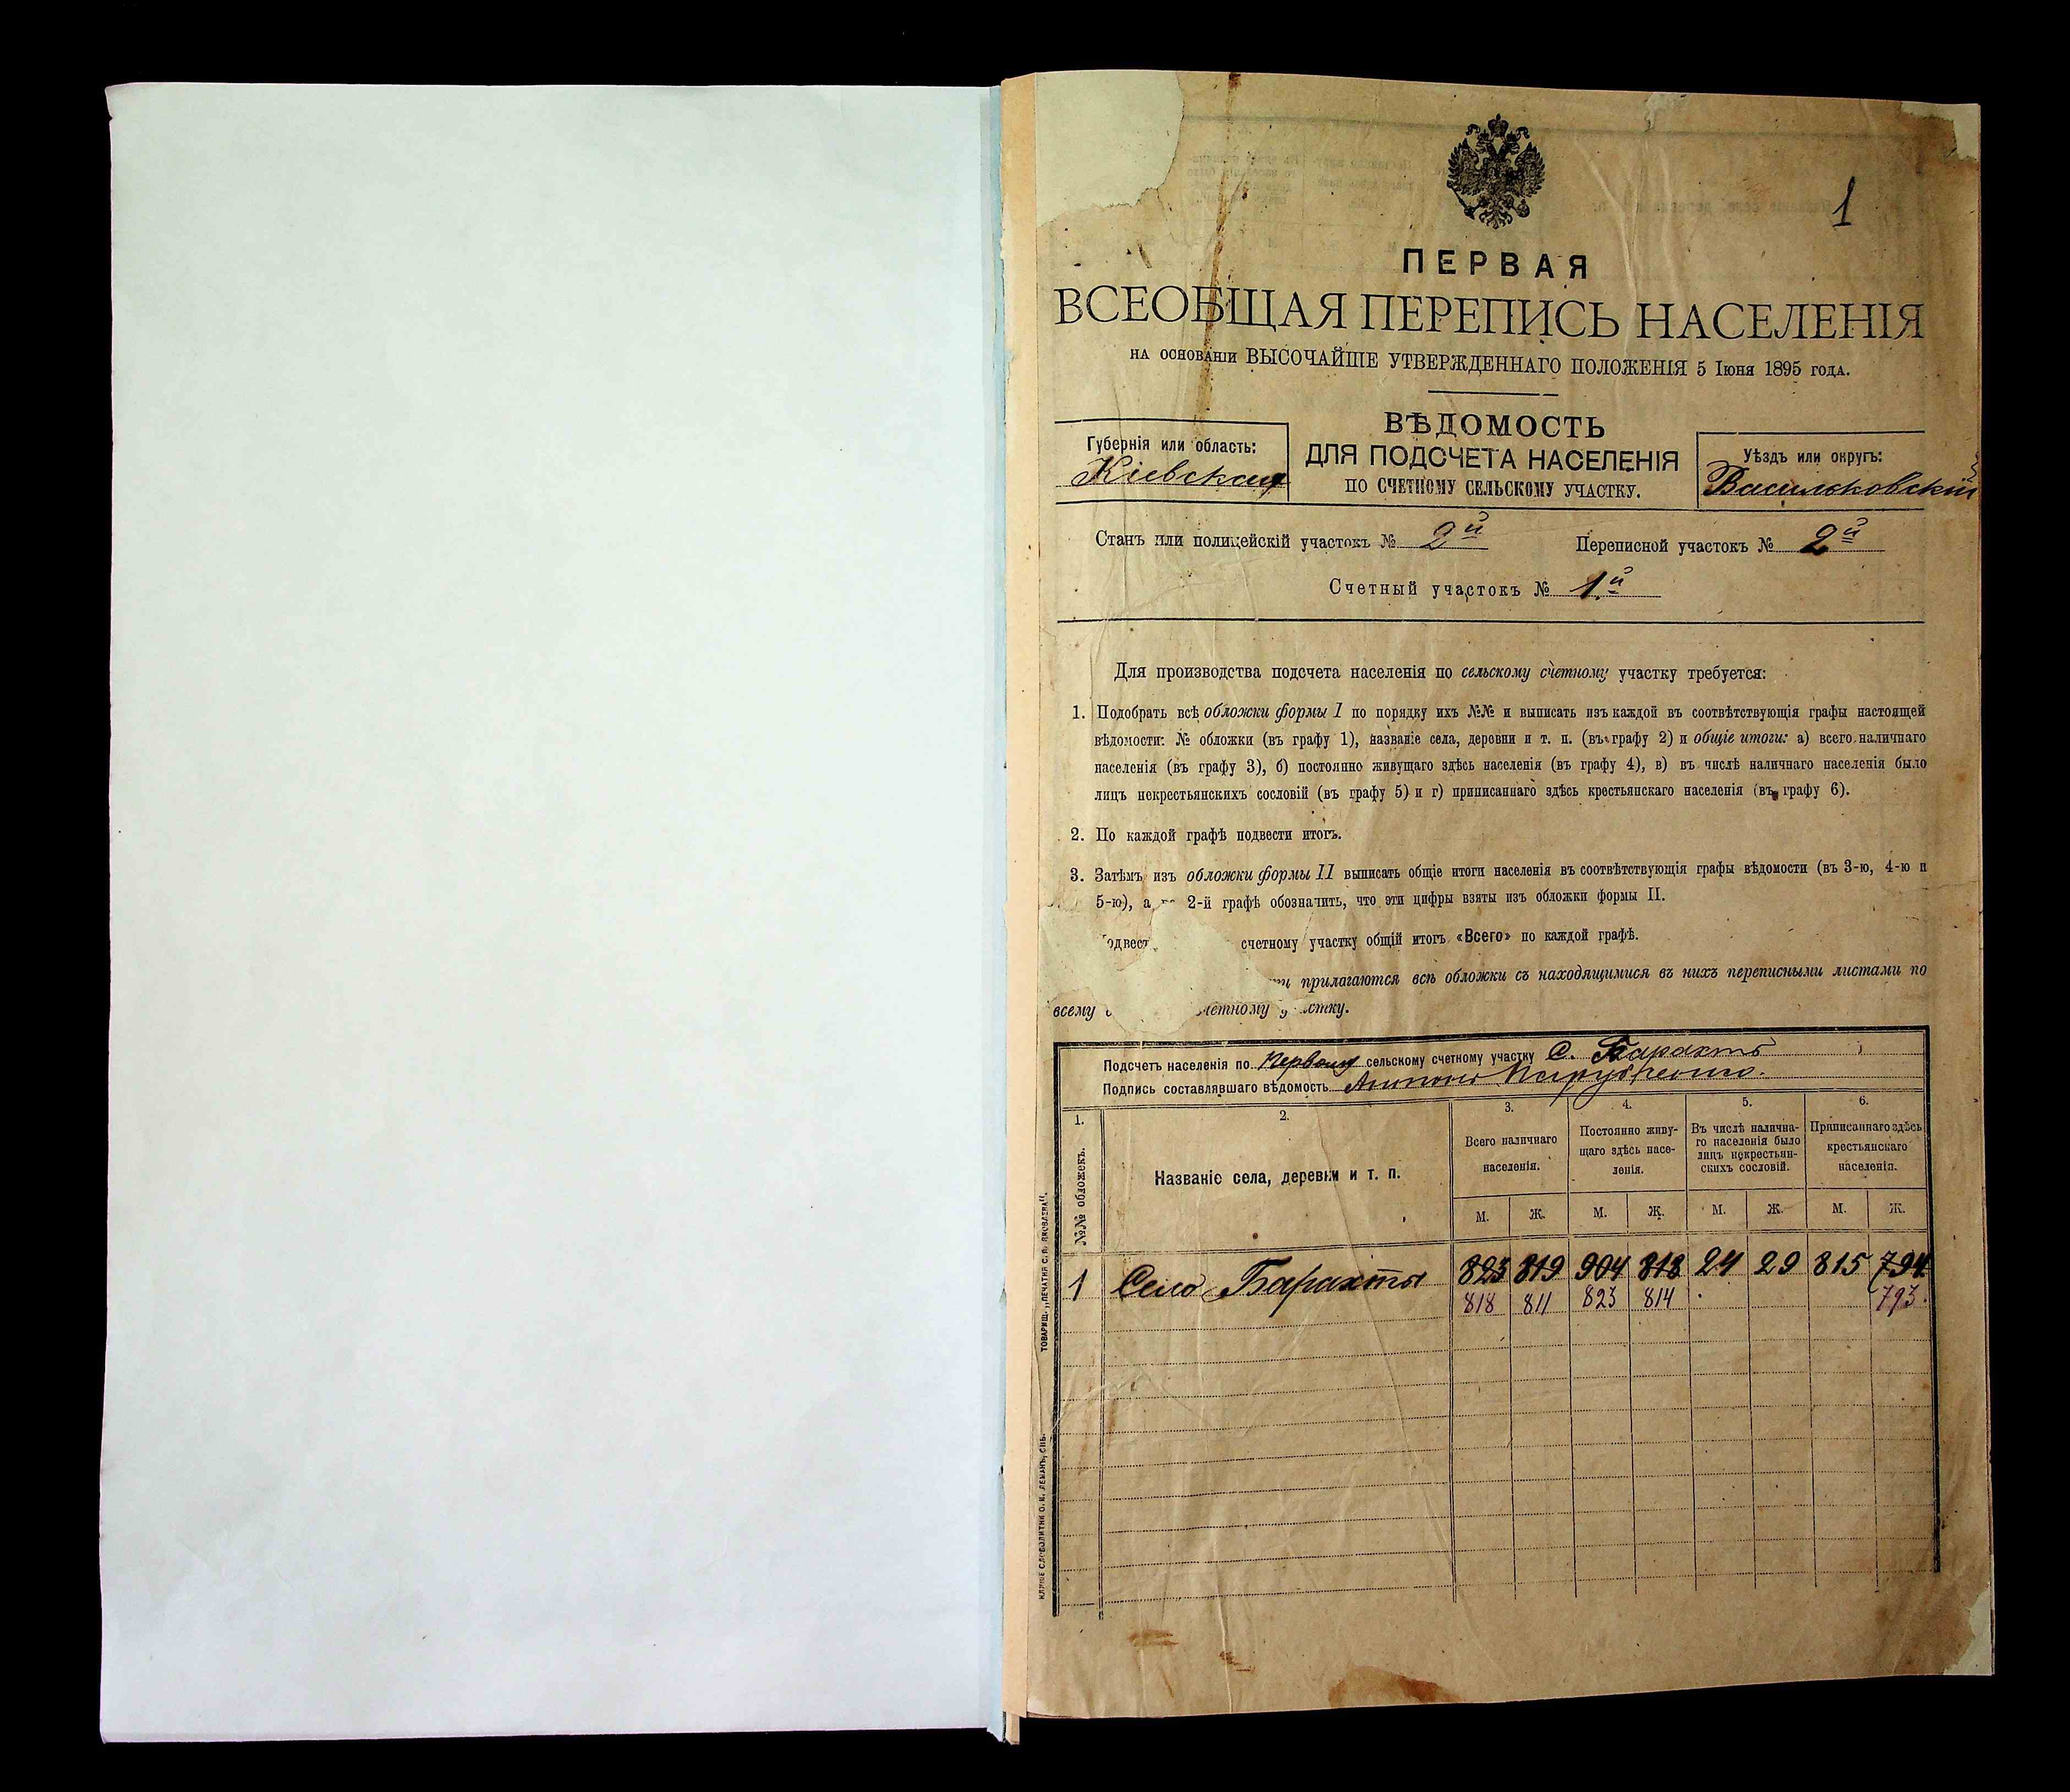 1
ПЕРВАЯ
ВСЕОБЩАЯ ПЕРЕПИСЬ НАСЕЛЕНІЯ
НА ОСНОВАНІИ ВЫСОЧАЙШЕ УТВЕРЖДЕННАГО ПОЛОЖЕНІЯ 5 Іюня 1895 ГОДА.
ВѢДОМОСТЬ
ДЛЯ ПОДСЧЕТА НАСЕЛЕНІЯ
ПО СЧЕТНОМУ СЕЛЬСКОМУ УЧАСТКУ.
Губернія или область:
Кіевская
Уѣздъ или округъ:
Васильковскій
Станъ или полицейскій участокъ № 2й Переписной участокъ № 2й
Счетный участокъ № 1й
Для производства подсчета населенія по сельскому счетному участку требуется:
1. Подобрать всѣ обложки формы I по порядку ихъ №№ и выписать изъ каждой въ соотвѣтствующія графы настоящей
вѣдомости: № обложки (въ графу 1), названіе села, деревни и т. п. (въ графу 2) и общіе итоги: а) всего наличнаго
населенія (въ графу 3), б) постоянно живущаго здѣсь населенія (въ графу 4), в) въ числѣ наличнаго населенія было
лицъ некрестьянскихъ сословій (въ графу 5) и г) приписаннаго здѣсь крестьянскаго населенія (въ графу 6).
2. По каждой графѣ подвести итогъ.
3. Затѣмъ изъ обложки формы II выписать общіе итоги населенія въ соотвѣтствующія графы вѣдомости (въ 3-ю, 4-ю и
5-ю), а 2-й графѣ обозначить, что эти цифры взяты изъ обложки формы II.
одвест счетному участку общій итогъ «Всего» по каждой графѣ.
прилагаются всѣ обложки съ находящимися въ нихъ переписными листами по
всему четному стку.
Подсчетъ населенія по первому сельскому счетному участку С. Барахтъ
Подпись составлявшаго вѣдомость
1. 2. 3. 4. 5. 6.
№№ обложекъ.
Названіе села, деревни и т. п.
Всего наличнаго
населенія.
Постоянно живу-
щаго здѣсь насе-
ленія.
Въ числѣ налична-
го населенія было
лицъ некрестьян-
скихъ сословій.
Приписаннаго здѣсь
крестьянскаго
населенія.
М. Ж. М. Ж. М. Ж. М. Ж.
1 Село Барахты 823 819 904 818 24 29 815 794
818 811 823 814 793.
ТОВАРИЩ. „ПЕЧАТНЯ С. П. ЯКОВЛЕВА".
КЛИШЕ СЛОВОЛИТНИ О. И. ЛЕМАНЪ, СПБ.